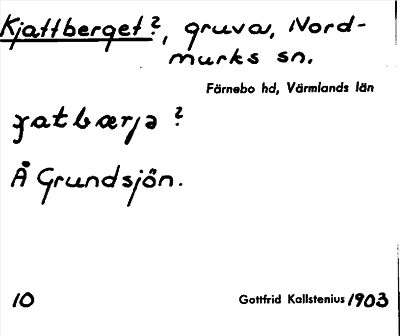 Kjattberget?, gruva, Nord-
murks sn.
Färnebo hd, Värmlands län
ɣatbærjə ?
Å Grundsjön.
10 Gottfrid Kallstenius 1903